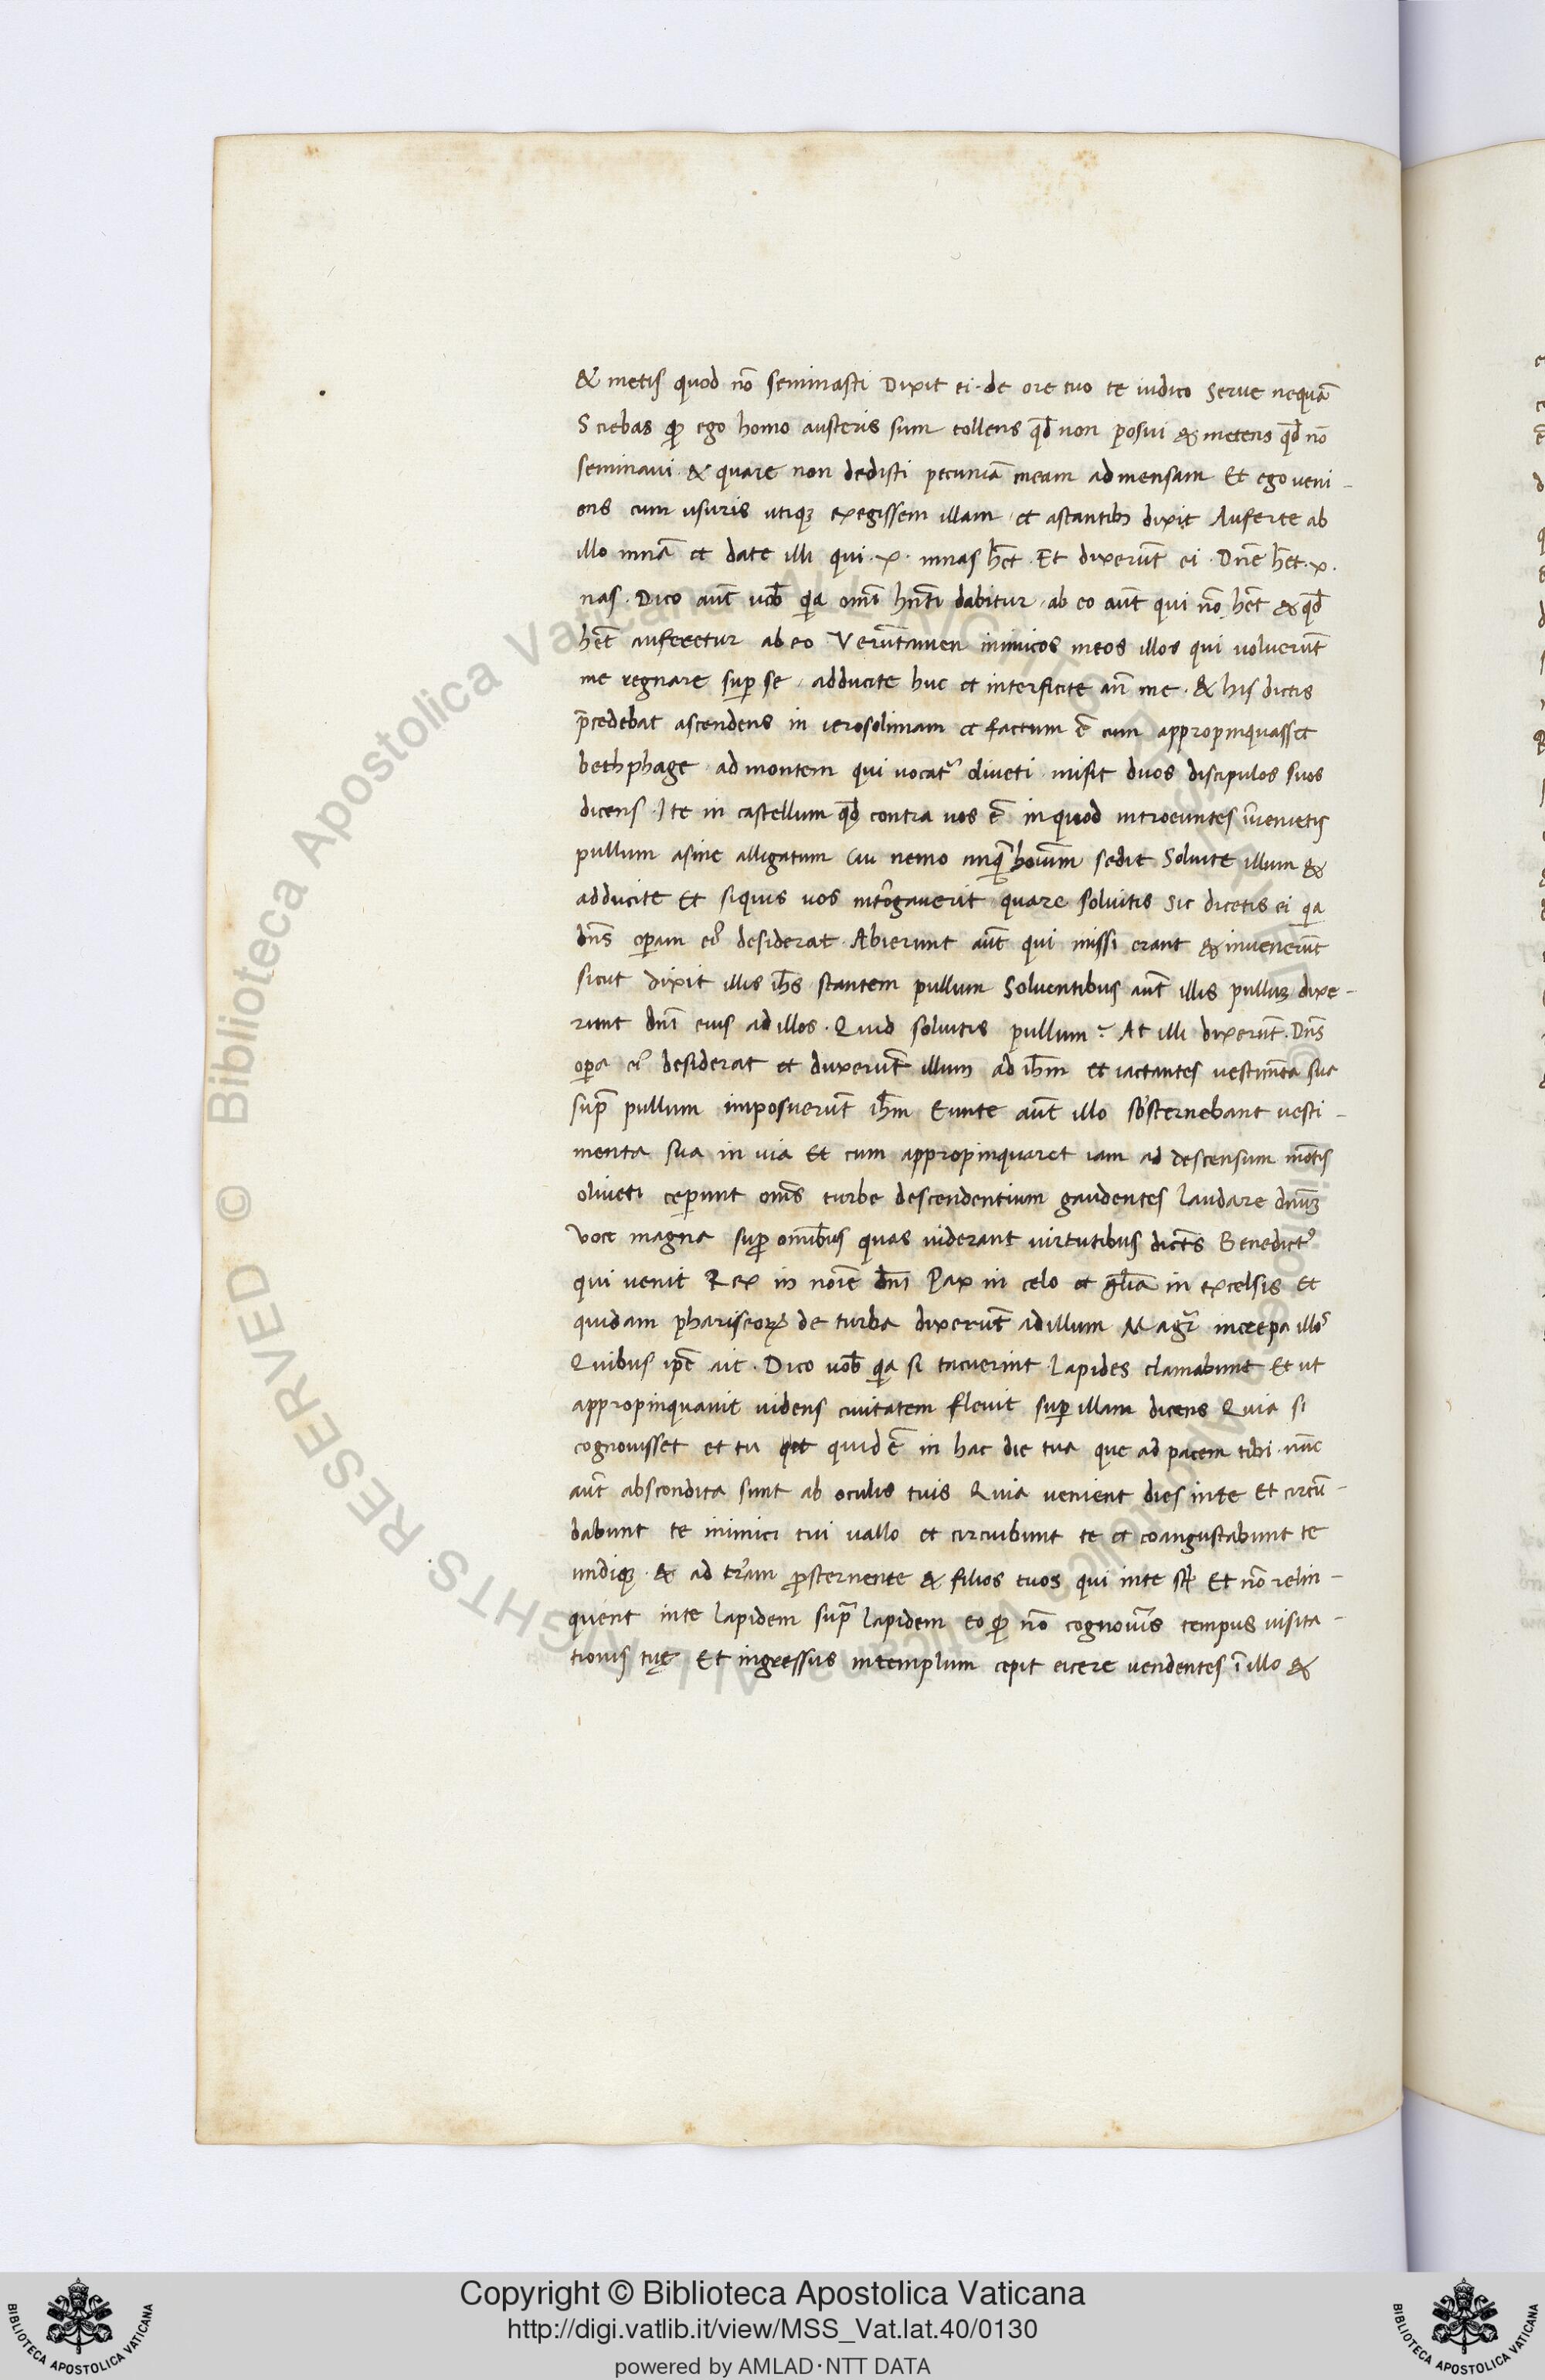 & metis quod nō seminasti Dixit ei · de ore tuo te iudico serve nequā
Sciebas qꝫ ego homo austeris sum tollens qd̄ non posui & metens qd̄ nō
seminavi · & quare non dedisti pecuniā meam ad mensam Et ego veni -
ens cum usuris utiqꝫ exegissem illam · et astantibꝫ dixit Auferte ab
illo mnā et date illi qui · x · mnas h̄et · Et dixerūt ei · Dn̄e h̄et · x ·
nas · Dico aūt vob̄ qia om̄i hn̄ti dabitur · ab eo aūt qui nō h̄et & qd̄
h̄et auferetur ab eo Verūtamen inimicos meos illos qui voluerūt
me regnare suꝑ se · adducite huc et interficite an̄ me · & his dictis
p̄cedebat ascendens in ierosolimam et factum ē cum appropinquasset
bethphage ad montem qui vocatr̄ oliveti · misit duos discipulos suos
dicens · Ite in castellum qd̄ contra vos ē in quod introeuntes īvenietis
pullum asine alligatum Cui nemo unqā hoium̄ sedit Solvite illum &
adducite Et siquis vos intr̄ogaverit quare solvitis Sic dicetis ei qia
dn̄s oꝑam eiꝰ desiderat · Abierunt aūt qui missi erant & invenerūt
sicut dixit illis ih̄s stantem pullum Solventibus aūt illis pulluꝫ dixe -
runt dn̄i eius ad illos · Quid solvitis pullum ? At illi dixerūt · Dn̄s
oꝑa eiꝰ desiderat et duxerūt illum ad ih̄m et iactantes vestim̄ta sua
sup̄ pullum imposuerūt ih̄m Eunte aūt illo sb̄sternebant vesti -
menta sua in via Et cum appropinquaret iam ad descensum mōtis
oliveti ceꝑunt om̄s turbe descendentium gaudentes laudare dn̄uꝫ
voce magna suꝑ omībus quas viderant virtutibus dicēts Benedictꝰ
qui venit Rex in noīe dn̄i Pax in celo et gl̄ia in excelsis Et
quidam phariseoꝝ de turba dixerūt ad illum Magr̄ increpa illos
Quibus ip̄e ait · Dico vob̄ qia si tacuerint lapides clamabunt Et ut
appropinquavit videns civitatem flevit suꝑ illam dicens Quia si
cognovisset et tu quidē in hac die tua que ad pacem tibi · nūc
aūt abscondita sunt ab oculis tuis Quia venient dies inte Et circū -
dabunt te inimici tui vallo et circuibunt te et coangustabunt te
undiqꝫ · & ad tr̄am ꝓsternente & filios tuos qui inte st̄ Et nō relin -
quent inte lapidem sup̄ lapidem eo qꝫ nō cognov̄is tempus visita -
tionis tuę Et ingressus intemplum cepit eicere vendentes ī illo &
Copyright © Biblioteca Apostolica Vaticana
http://digi.vatlib.it/view/MSS_Vat.lat.40/0130
powered by AMLAD·NTT DATA